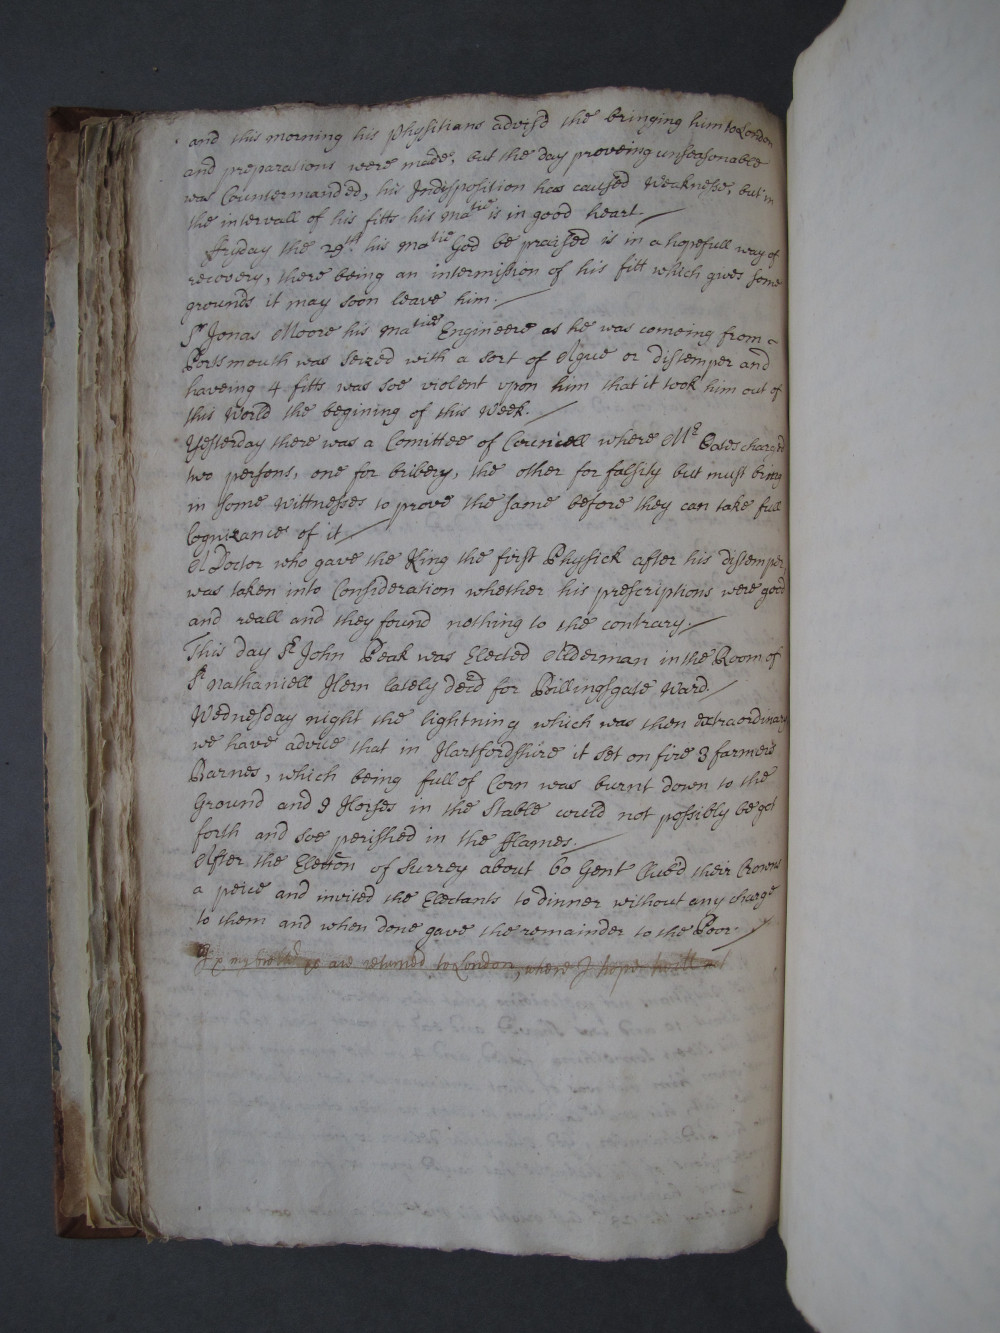 and this morning his Physitians advis'd the bringing him to London
and preparations were made, but the day proveing unseasonable
was Countermanded, his Indisposition has caused Weaknesse, but in
the intervall of his fitts his Ma<sup>tie</sup> is in good heart.
Fryday the 29<sup>th</sup> his Ma<sup>tie</sup> God be praised is in a hopefull way of
recovery, there being an intermission of his fitt which gives some
grounds it may soon leave him.
S<sup>r</sup> Jonas Moore his Ma<sup>ties</sup> Engineere as he was comeing from
Portsmouth was seized with a sort of Ague or distemper and
haveing 4 fitts was soe violent upon him that it took him out of
this World the begining of this Week.
Yesterday there was a Comittee of Councell where M<sup>r</sup> Oates charged
two persons, one for bribery, the other for falsity but must bring
in some wittnesses to prove the same before they can take full
Cognizance of it
A Doctor who gave the King the first Physick after his distemper,
was taken into Consideration whether his prescriptions were good
and reall and they found nothing to the contrary.
This day S<sup>r</sup> John Peak was Elected Alderman in the Room of
S<sup>r</sup> Nathaniell Hern lately dead for Billingsgate Ward.
Wednesday night the lightning which was then extraordinary
we have advice that in Hartfordshire it set on fire 3 farmers
Barnes, which being full of Corn was burnt down to the
Ground and 9 Horses in the Stable could not possibly be got
forth and soe perished in the fflames.
After the Election of Surrey about 60 Gent Club'd their Crowns
a peice and invited the Electants to dinner without any charge
to them and when done gave the remainder to the Poor.
are returned to London, where I hope